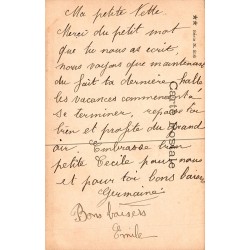 Ma petite
Merci du petit mot
que tu nous as écrit,
nous voyons que maintenant
du fait ta dernière
les vacances commencent à
se terminer, repose toi
bien et profite du Grand
air. Embrasse bien
petite Cecile pour nous
et pour toi bons baisers
Germaine
Bons baisers
Emile
Carte Postale